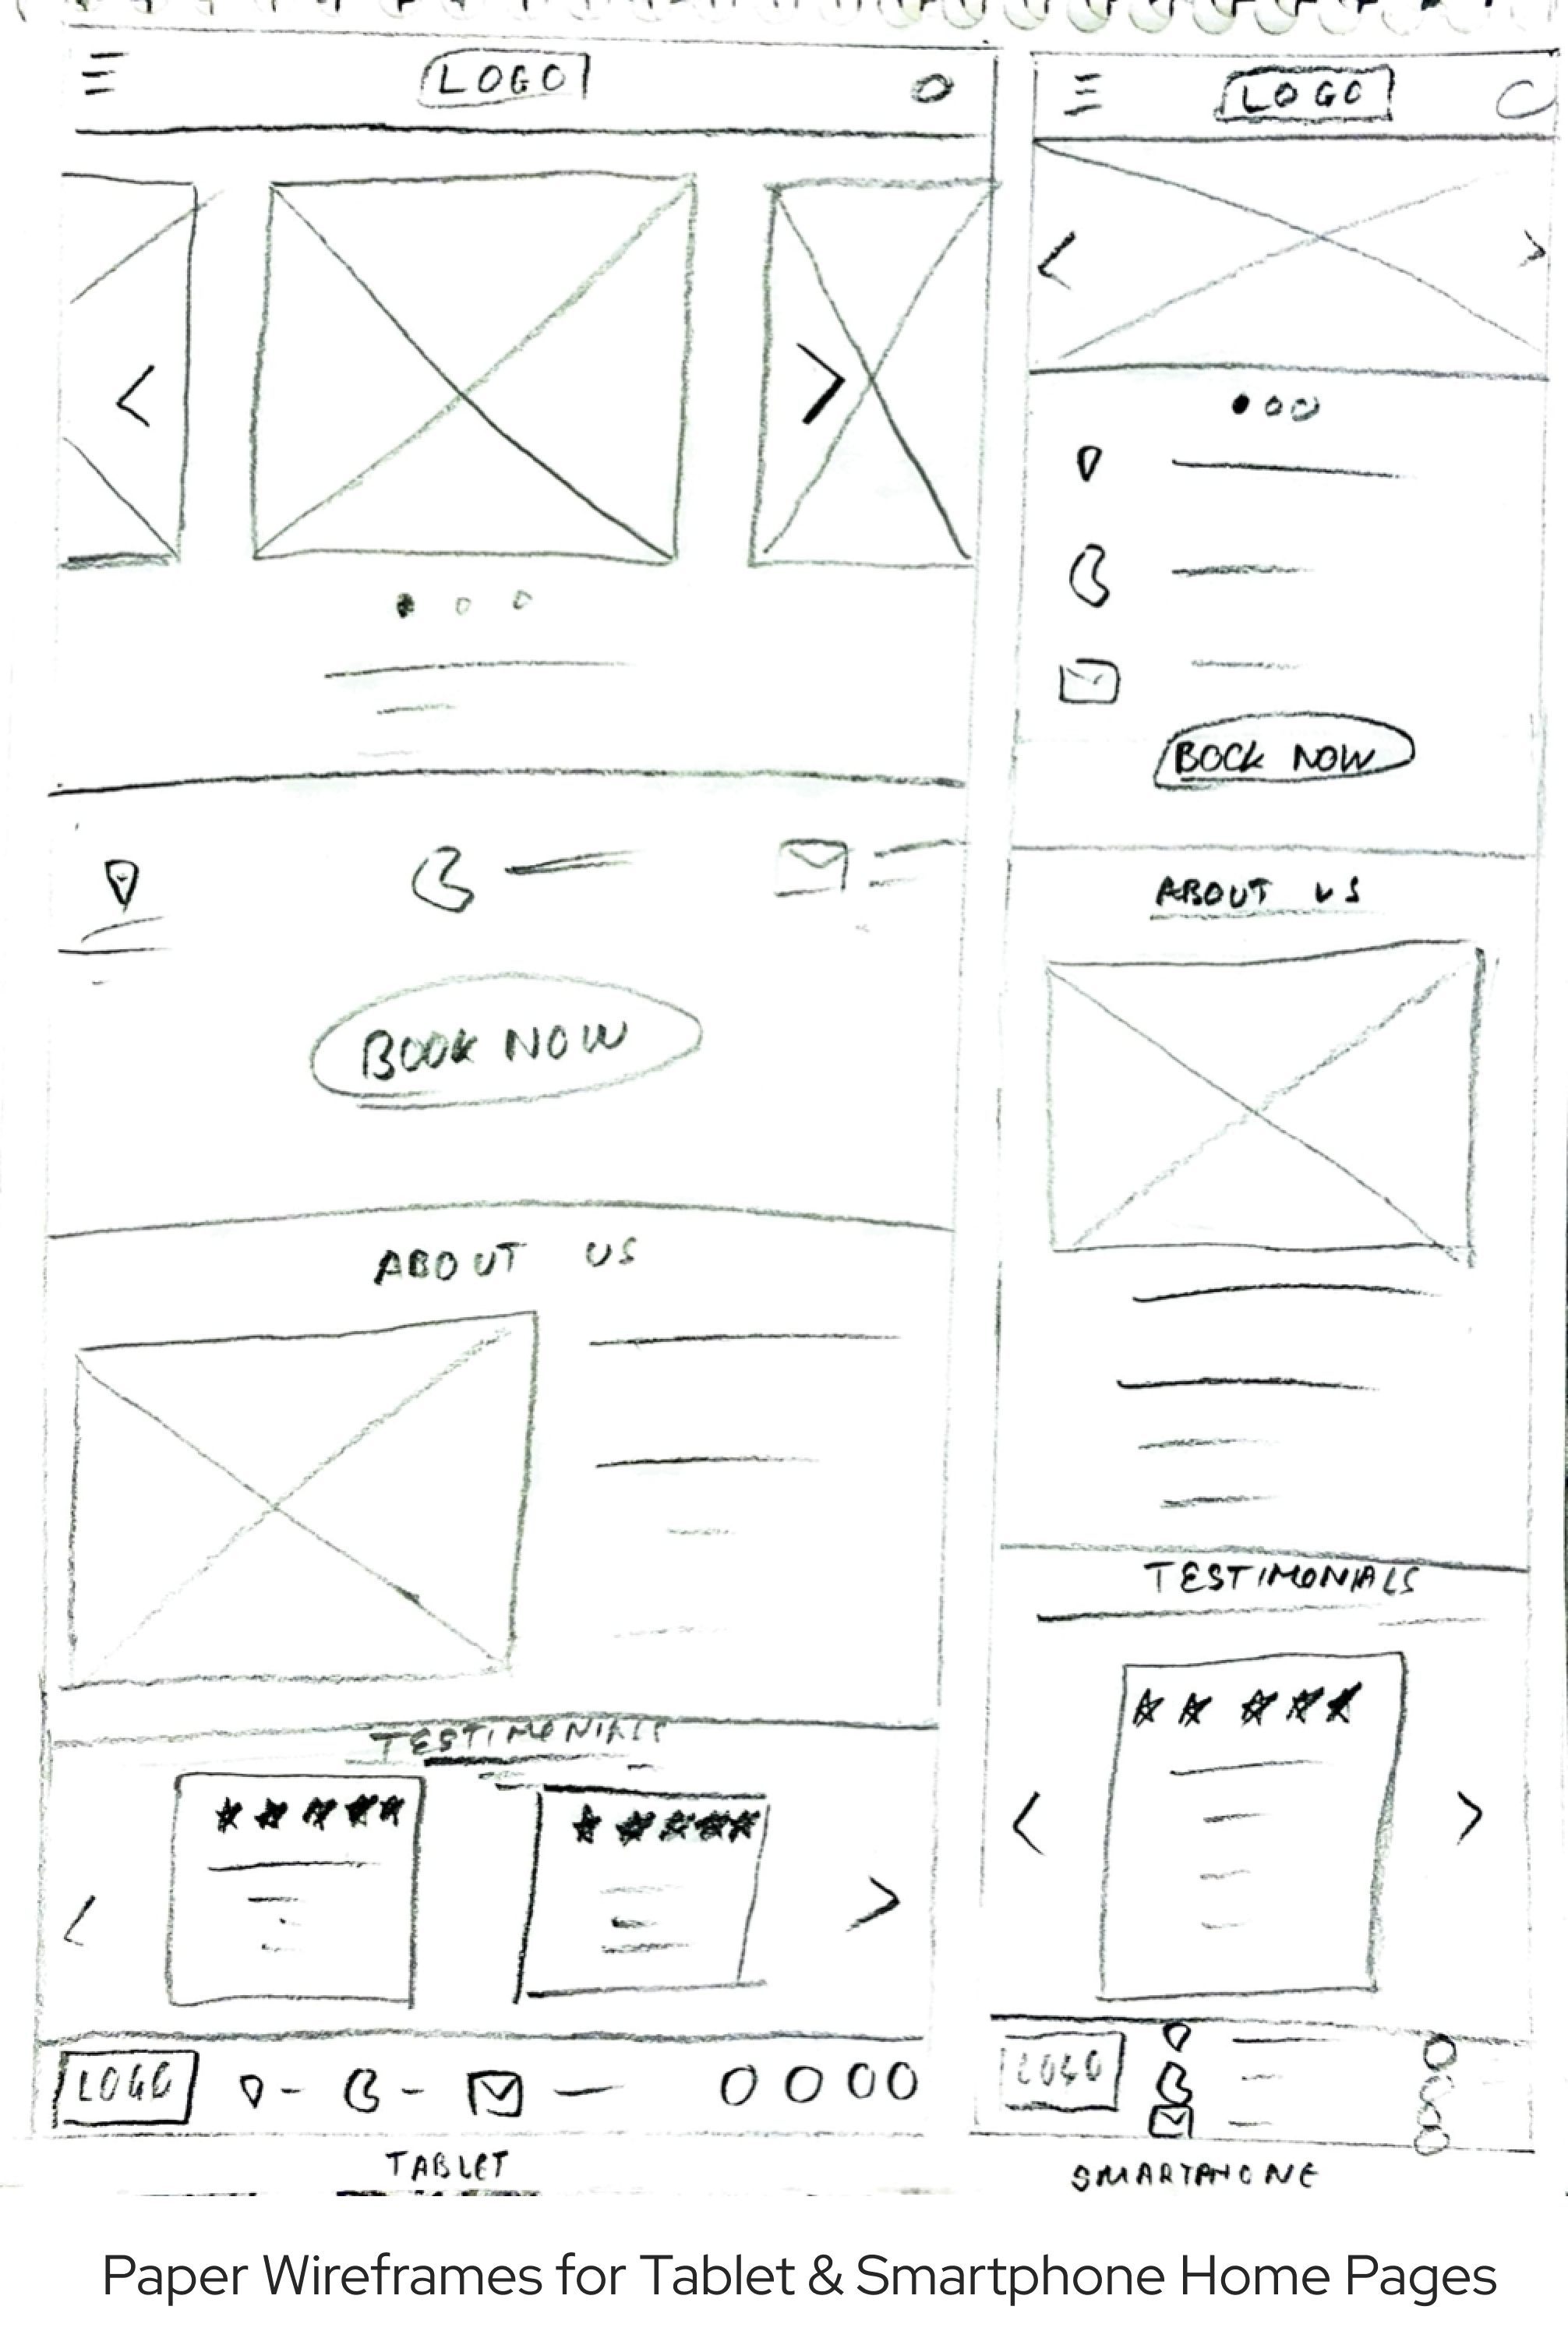 LOGO
BOOK NOW
ABOUT US
TESTIMONIALS
LOGO
TABLET
LOGO
BOOK NOW
ABOUT US
TESTIMONIALS
LOGO
SMARTPHONE
Paper Wireframes for Tablet & Smartphone Home Pages